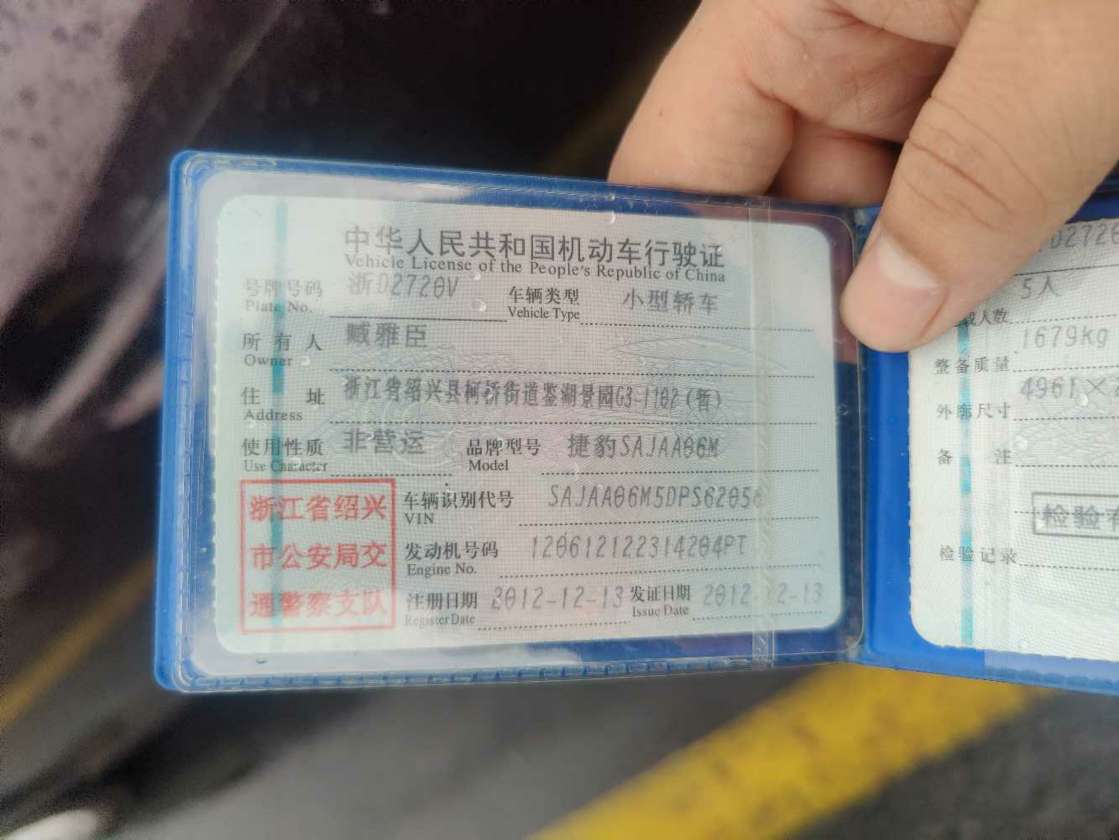 中华人民共和国机动车行驶证
Vehicle License of the People's Republic of China
号牌号码 浙D2720V 车辆类型 小型轿车
Plate No. Vehicle Type
所有人 臧雅臣
Owner
住址 浙江省绍兴县柯桥街道鉴湖景园G3-1102(暂)
Address
使用性质 非营运 品牌型号 捷豹SAJAA06M
Use Character Model
浙江省绍兴
市公安局交
通警察支队
车辆识别代号 SAJAA06M5DPS62056
VIN
发动机号码 120612122314204PT
Engine No.
注册日期 2012-12-13 发证日期 2012-12-13
Register Date Issue Date
5人
载人数
整备质量 1679kg
外廓尺寸 4961×
备注
检验
检验记录